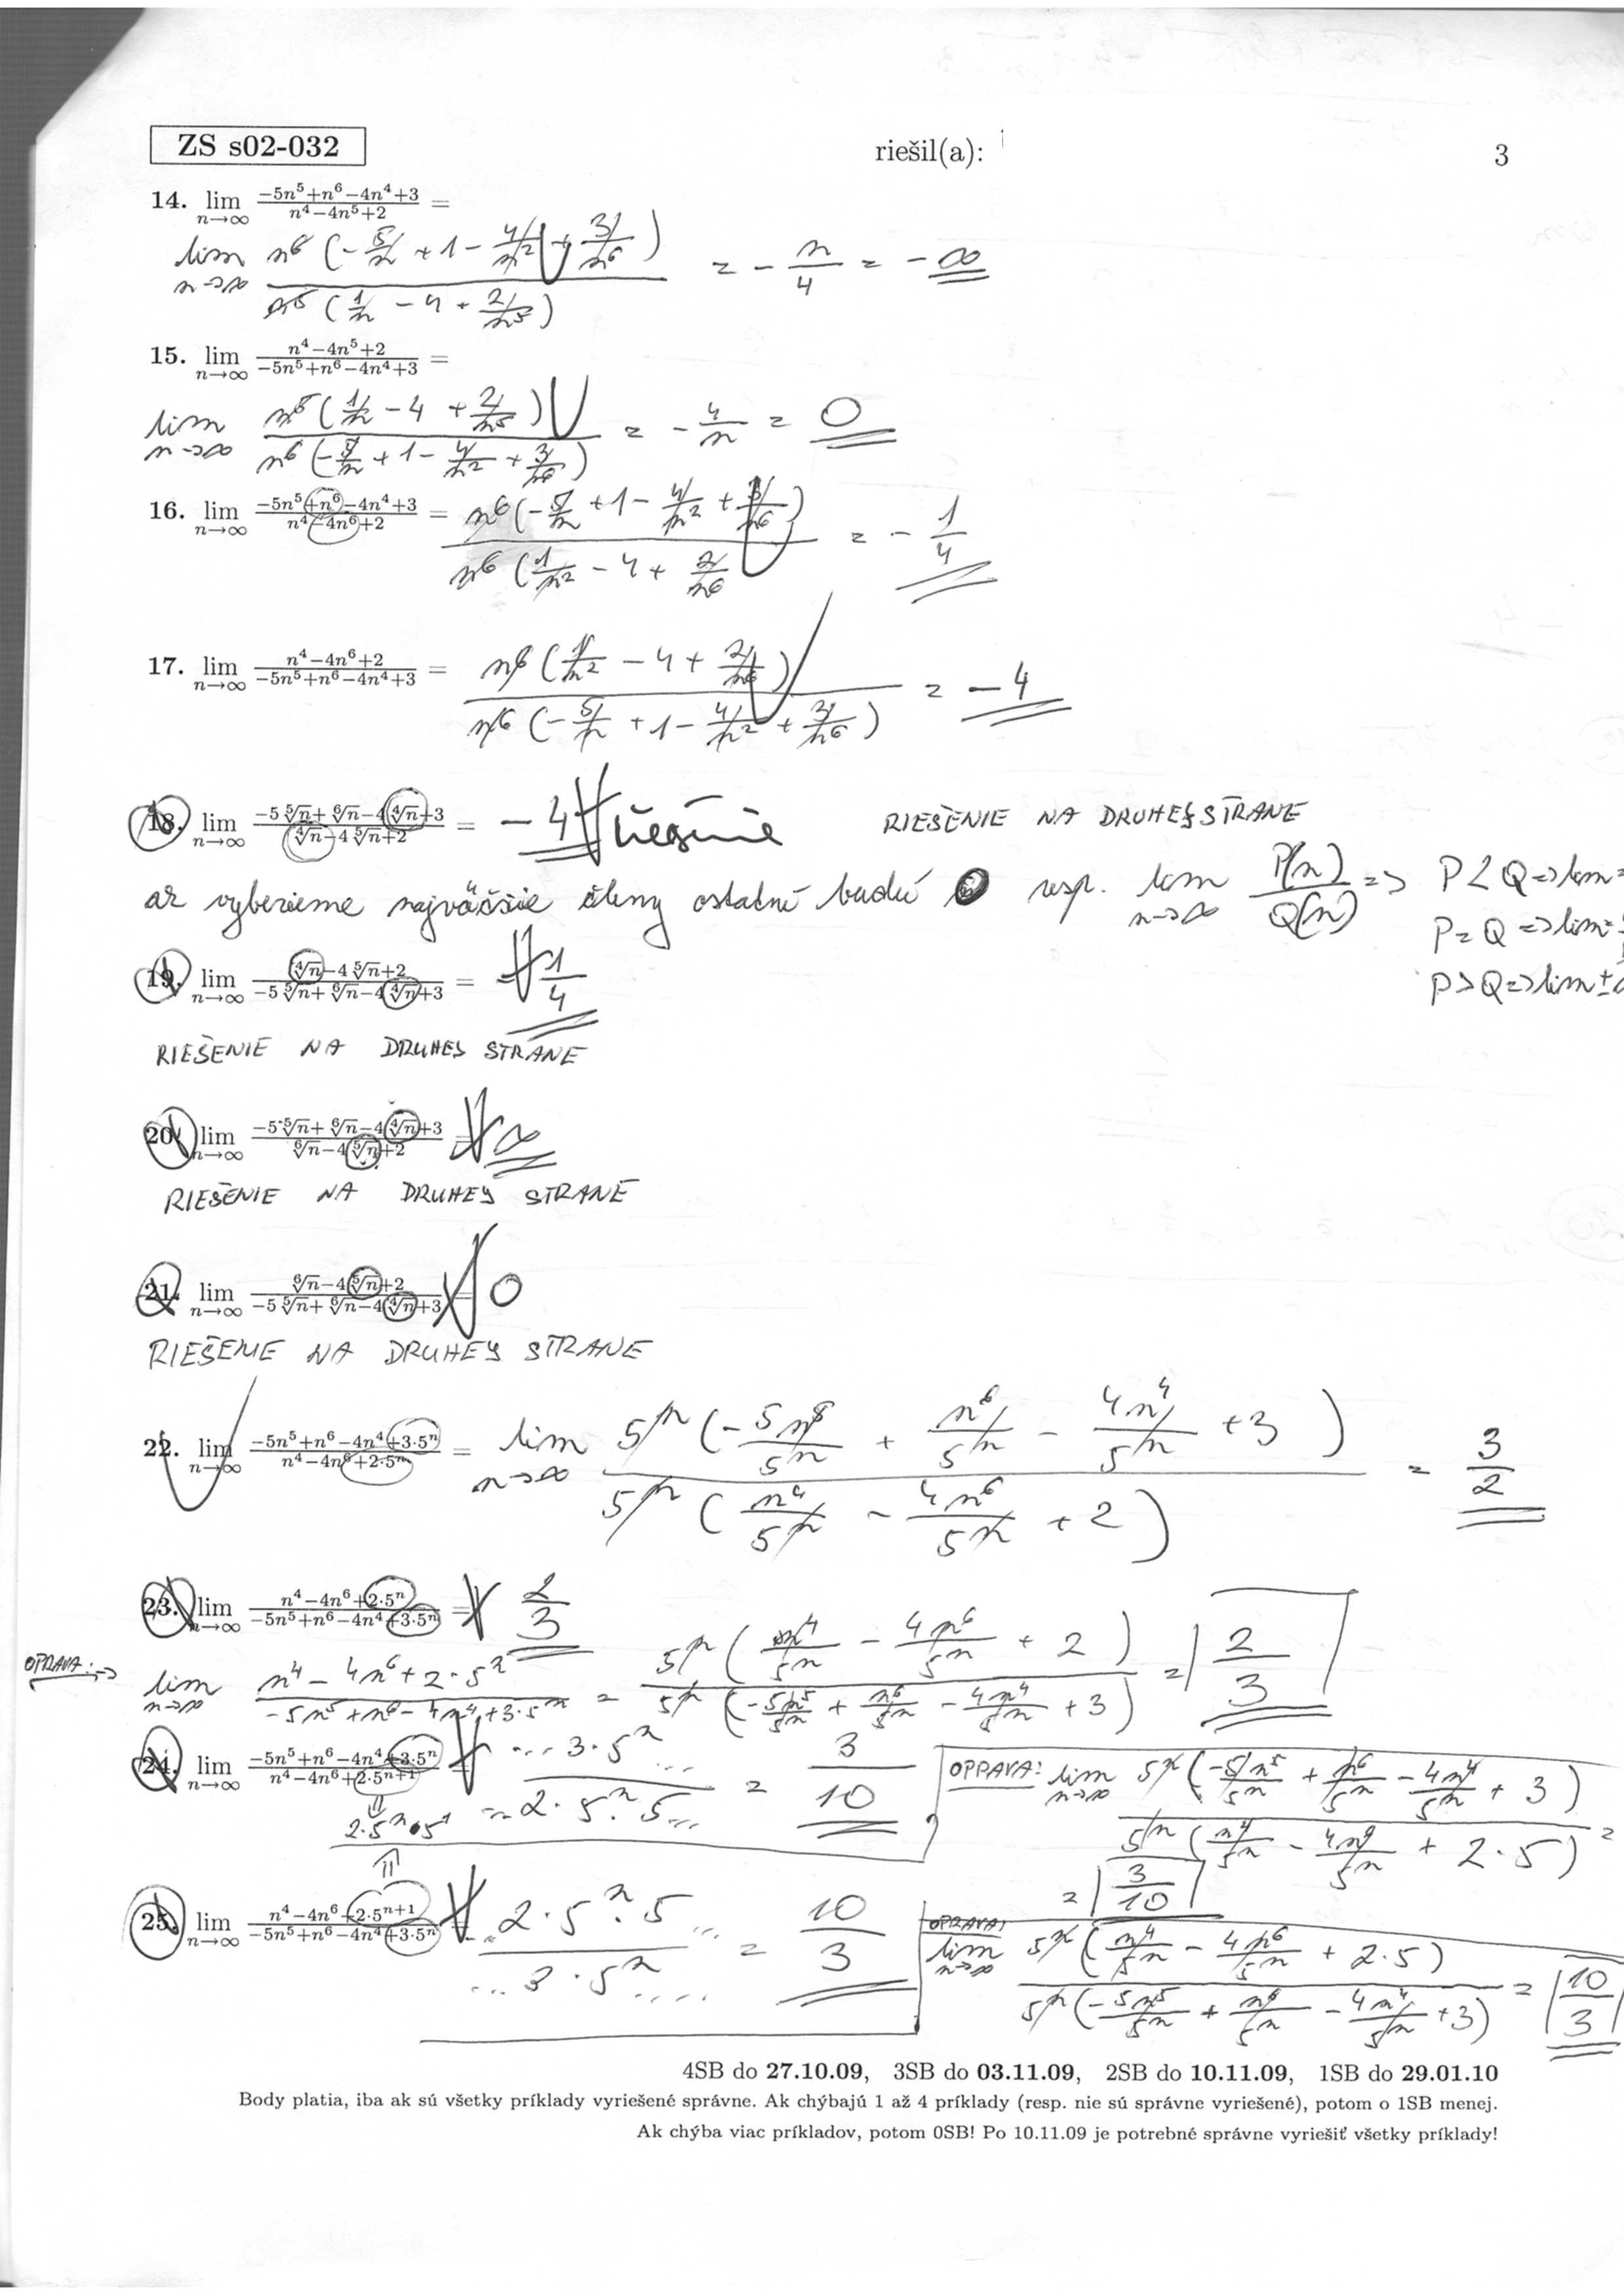 ZS s02-032 riešil(a): 3
14. lim n→∞ (-5n⁵+n⁶-4n⁴+3)/(n⁴-4n⁵+2) =
lim n→∞ n⁶(-5/n + 1 - 4/n² + 3/n⁶) / n⁵(1/n - 4 + 2/n⁵) = - n/4 = -∞
15. lim n→∞ (n⁴-4n⁵+2)/(-5n⁵+n⁶-4n⁴+3) =
lim n→∞ n⁵(1/n - 4 + 2/n⁵) / n⁶(-5/n + 1 - 4/n² + 3/n⁶) = - 4/n = 0
16. lim n→∞ (-5n⁵+n⁶-4n⁴+3)/(n⁴-4n⁶+2) = n⁶(-5/n + 1 - 4/n² + 3/n⁶) / n⁶(1/n² - 4 + 2/n⁶ = - 1/4
17. lim n→∞ (n⁴-4n⁶+2)/(-5n⁵+n⁶-4n⁴+3) = n⁶(1/n² - 4 + 2/n⁶) / n⁶(-5/n + 1 - 4/n² + 3/n⁶) = -4
18. lim n→∞ (-5 ⁵√n + ⁶√n - 4 ⁴√n + 3)/(⁴√n - 4 ⁵√n + 2) = -4 RIEŠENIE NA DRUHEJ STRANE
ak vyberieme najväčšie členy ostatné budú 0 resp. lim n→∞ P(n)/Q(n) => P < Q => lim =
P = Q => lim =
P > Q => lim ±
19. lim n→∞ (⁴√n - 4 ⁵√n + 2)/(-5 ⁵√n + ⁶√n - 4 ⁴√n + 3) = - 1/4
RIEŠENIE NA DRUHEJ STRANE
20. lim n→∞ (-5 ⁵√n + ⁶√n - 4 ⁴√n + 3)/(⁶√n - 4 ⁵√n + 2) = ∞
RIEŠENIE NA DRUHEJ STRANE
21. lim n→∞ (⁶√n - 4 ⁵√n + 2)/(-5 ⁵√n + ⁶√n - 4 ⁴√n + 3) = 0
RIEŠENIE NA DRUHEJ STRANE
22. lim n→∞ (-5n⁵+n⁶-4n⁴+3·5ⁿ)/(n⁴-4n⁶+2·5ⁿ) = lim n→∞ 5ⁿ(-5n⁵/5ⁿ + n⁶/5ⁿ - 4n⁴/5ⁿ + 3) / 5ⁿ(n⁴/5ⁿ - 4n⁶/5ⁿ + 2) = 3/2
23. lim n→∞ (n⁴-4n⁶+2·5ⁿ)/(-5n⁵+n⁶-4n⁴+3·5ⁿ) = 2/3
OPRAVA: → lim n→∞ (n⁴ - 4n⁶ + 2·5ⁿ)/(-5n⁵ + n⁶ - 4n⁴ + 3·5ⁿ) = 5ⁿ(n⁴/5ⁿ - 4n⁶/5ⁿ + 2) / 5ⁿ(-5n⁵/5ⁿ + n⁶/5ⁿ - 4n⁴/5ⁿ + 3) = 2/3
24. lim n→∞ (-5n⁵+n⁶-4n⁴+3·5ⁿ)/(n⁴-4n⁶+2·5ⁿ⁺¹) = ...3·5ⁿ... / ...2·5ⁿ·5... = 3/10
2·5ⁿ·5¹
OPRAVA: lim n→∞ 5ⁿ(-5n⁵/5ⁿ + n⁶/5ⁿ - 4n⁴/5ⁿ + 3) / 5ⁿ(n⁴/5ⁿ - 4n⁶/5ⁿ + 2·5) =
= 3/10
25. lim n→∞ (n⁴-4n⁶+2·5ⁿ⁺¹)/(-5n⁵+n⁶-4n⁴+3·5ⁿ) = ...2·5ⁿ·5... / ...3·5ⁿ.... = 10/3
OPRAVA: lim n→∞ 5ⁿ(n⁴/5ⁿ - 4n⁶/5ⁿ + 2·5) / 5ⁿ(-5n⁵/5ⁿ + n⁶/5ⁿ - 4n⁴/5ⁿ + 3) = 10/3
4SB do 27.10.09, 3SB do 03.11.09, 2SB do 10.11.09, 1SB do 29.01.10
Body platia, iba ak sú všetky príklady vyriešené správne. Ak chýbajú 1 až 4 príklady (resp. nie sú správne vyriešené), potom o 1SB menej.
Ak chýba viac príkladov, potom 0SB! Po 10.11.09 je potrebné správne vyriešiť všetky príklady!